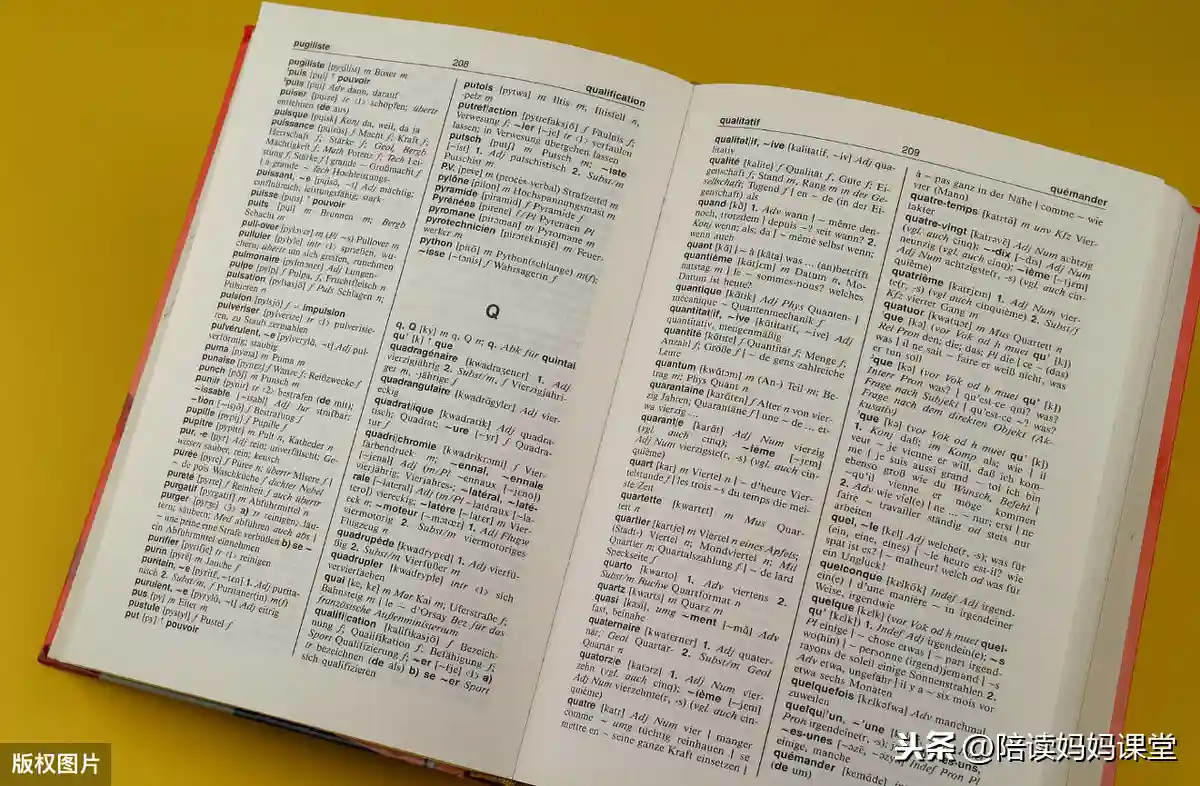 pugiliste
208
qualification
pugiliste [pyʒilist] m Boxer m
¹puis [pɥi] ↑ pouvoir
²puis [pɥi] Adv dann, darauf
puiser [pɥize] tr ‹1› schöpfen; übertr
entlehnen (de aus)
puisque [pɥisk] Konj da, weil, da ja
puissance [pɥisɑ̃s] f Macht f; Kraft f;
Herrschaft f; Stärke f; Geol, Bergb
Mächtigkeit f; Math Potenz f; Tech Lei-
stung f, Stärke f | grande ~ Großmacht f
| à grande ~ Tech Hochleistungs-
puissant, ~e [pɥisɑ̃, ~t] Adj mächtig;
einflußreich; leistungsfähig; stark
puisse [pɥis] ↑ pouvoir
puits [pɥi] m Brunnen m; Bergb
Schacht m
pull-over [pylɔvɛr] m (Pl ~s) Pullover m
pulluler [pylyle] intr ‹1› sprießen, wu-
chern; übertr um sich greifen, zunehmen
pulmonaire [pylmɔnɛr] Adj Lungen-
pulpe [pylp] f Pulpa, Fruchtfleisch n
pulsation [pylsasjɔ̃] f Puls Schlagen n;
Pulsieren n
pulsion [pylsjɔ̃] f ~ impulsion
pulvériser [pylverize] tr ‹1› pulverisie-
ren, zu Staub zermahlen
pulvérulent, ~e [pylverylɑ̃, ~t] Adj pul-
verförmig; staubig
puma [pyma] m Puma m
punaise [pynɛz] f Wanze f; Reißzwecke f
punch [pɔ̃ʃ] m Punsch m
punir [pynir] tr ‹2› bestrafen (de mit);
~issable [~isabl] Adj Jur strafbar;
~ition [~isjɔ̃] f Bestrafung f
pupille [pypij] f Pupille f
pupitre [pypitr] m Pult n, Katheder n
pur, ~e [pyr] Adj rein; unverfälscht; Ge-
wissen sauber, rein; keusch
purée [pyre] f Püree n; übertr Misere f |
~ de pois Waschküche f dichter Nebel
pureté [pyrte] f Reinheit f auch übertr
purgatif [pyrgatif] m Abführmittel n
purger [pyrʒe] ‹3› a) tr reinigen, läu-
tern; säubern; Med abführen auch abs |
~ une peine eine Strafe verbüßen b) se ~
ein Abführmittel einnehmen
purifier [pyrifje] tr ‹1› reinigen
purin [pyrɛ̃] m Jauche f
puritain, ~e [pyritɛ̃, ~ɛn] 1. Adj purita-
nisch 2. Subst/m, f Puritaner(in) m(f)
purulent, ~e [pyrylɑ̃, ~t] Adj eitrig
pus [py] m Eiter m
pustule [pystyl] f Pustel f
put [py] ↑ pouvoir
putois [pytwa] m Iltis m; Iltisfell n,
-pelz m
putréf|action [pytrefaksjɔ̃] f Fäulnis f;
Verwesung f; ~ier [~je] tr ‹1› verfaulen
lassen; in Verwesung übergehen lassen
putsch [putʃ] m Putsch m; ~iste
[~ist] 1. Adj putschistisch 2. Subst/m
Putschist m
P.V. [peve] m (procès-verbal) Strafzettel m
pylône [pilon] m Hochspannungsmast m
pyramide [piramid] f Pyramide f
Pyrénées [pirene] f/Pl Pyrenäen Pl
pyromane [pirɔman] m Pyromane m
pyrotechnicien [pirɔtɛknisjɛ̃] m Feuer-
werker m
python [pitɔ̃] m Python(schlange) m(f);
~isse [~ɔnis] f Wahrsagerin f
Q
q, Q [ky] m q, Q n; q. Abk für quintal
qu' [k] ↑ que
quadragénaire [kwadraʒenɛr] 1. Adj
vierzigjährig 2. Subst/m, f Vierzigjähri-
ger m, -jährige f
quadrangulaire [kwadrɑ̃gylɛr] Adj vier-
eckig
quadrat|ique [kwadratik] Adj quadra-
tisch; Quadrat; ~ure [~yr] f Quadra-
tur f
quadri|chromie [kwadrikrɔmi] f Vier-
farbendruck m; ~ennal, ~ennale
[~jenal] Adj (m/Pl ~ennaux [~jeno])
vierjährig, Vierjahres-; ~latéral, ~laté-
rale [~lateral] Adj (m/Pl ~latéraux [~la-
tero]) viereckig; ~latère [~latɛr] m Vier-
eck n; ~moteur [~mɔtœr] 1. Adj Flugw
viermotorig 2. Subst/m viermotoriges
Flugzeug n
quadrupède [kwadrypɛd] 1. Adj vierfü-
ßig 2. Subst/m Vierfüßer m
quadrupler [kwadryple] intr ‹1› sich
vervierfachen
quai [ke, kɛ] m Mar Kai m; Uferstraße f;
Bahnsteig m | le ~ d'Orsay Bez für das
französische Außenministerium
qualifi|cation [kalifikasjɔ̃] f Bezeich-
nung f; Qualifikation f, Befähigung f;
Sport Qualifizierung f; ~er [~fje] ‹1› a)
tr bezeichnen (de als) b) se ~er Sport
sich qualifizieren
qualitatif
209
quémander
qualitat|if, ~ive [kalitatif, ~iv] Adj qua-
litativ
qualité [kalite] f Qualität f, Güte f; Ei-
genschaft f; Stand m, Rang m in der Ge-
sellschaft; Tugend f | en ~ de (in der Ei-
genschaft) als
quand [kɑ̃] 1. Adv wann | ~ même den-
noch, trotzdem | depuis ~? seit wann? 2.
Konj wenn; als; da | ~ même selbst wenn;
wenn auch
quant [kɑ̃] ~ à [kɑ̃ta] was ... (an)betrifft
quantième [kɑ̃tjɛm] m Datum n, Mo-
natstag m | le ~ sommes-nous? welches
Datum ist heute?
quantique [kɑ̃tik] Adj Phys Quanten- |
mécanique ~ Quantenmechanik f
quantitat|if, ~ive [kɑ̃titatif, ~ive] Adj
quantitativ, mengenmäßig
quantité [kɑ̃tite] f Quantität f; Menge f;
Anzahl f; Größe f | ~ de gens zahlreiche
Leute
quantum [kwɑ̃tɔm] m (An-) Teil m; Be-
trag m; Phys Quant n
quarantaine [karɑ̃tɛn] f Alter n von vier-
zig Jahren; Quarantäne f | une ~ de ... et-
wa vierzig ...
quarant|e [karɑ̃t] Adj Num vierzig
(vgl. auch cinq); ~ième [~jɛm]
Adj Num vierzigste(r, -s) (vgl. auch cin-
quième)
quart [kar] m Viertel n | ~ d'heure Vier-
telstunde f | les trois ~s du temps die mei-
ste Zeit
quartette [kwartɛt] m Mus Quar-
tett n
quartier [kartje] m Viertel n eines Apfels;
(Stadt-) Viertel n; Mondviertel n; Mil
Quartier n; Quartalszahlung f | ~ de lard
Speckseite f
quarto [kwarto] 1. Adv viertens 2.
Subst/m Buchw Quartformat n
quartz [kwarts] m Quarz m
quasi [kazi], umg ~ment [~mɑ̃] Adv
fast, beinahe
quaternaire [kwatɛrnɛr] 1. Adj quater-
när; Geol Quartär- 2. Subst/m Geol
Quartär n
quatorz|e [katɔrz] 1. Adj Num vier-
zehn (vgl. auch cinq); ~ième [~jɛm]
Adj Num vierzehnte(r, -s) (vgl. auch cin-
quième)
quatre [katr] Adj Num vier | manger
comme ~ umg tüchtig reinhauen | se
mettre en ~ seine ganze Kraft einsetzen |
à ~ pas ganz in der Nähe | comme ~ wie
vier (Mann)
quatre-temps [katrtɑ̃] m unv Kfz Vier-
takter
quatre-vingt [katravɛ̃] Adj Num achtzig
(vgl. auch cinq); ~-dix [~dis] Adj Num
neunzig (vgl. auch cinq); ~ième [~jɛm]
Adj Num achtzigste(r, -s) (vgl. auch cin-
quième)
quatrième [katrjɛm] 1. Adj Num vier-
te(r, -s) (vgl auch cinquième) 2. Subst/f
Kfz vierter Gang m
quatuor [kwatɥɔr] m Mus Quartett n
¹que [kə] (vor Vok od h muet qu' [k])
Rel Pron den; die; das; Pl die | ce ~ (das)
was | il ne sait ~ faire er weiß nicht, was
er tun soll
²que [kə] (vor Vok od h muet qu' [k])
Interr Pron was? | qu'est-ce qui? was?
Frage nach Subjekt | qu'est-ce ~? was?
Frage nach dem direkten Objekt (Ak-
kusativ)
³que [kə] (vor Vok od h muet qu' [k])
1. Konj daß; im Komp als; wie | il
veut ~ je vienne er will, daß ich kom-
me | je suis aussi grand ~ toi ich bin
ebenso groß wie du Wunsch, Befehl |
~ qu'il vienne er möge kommen
2. Adv wie viel(e) | ne ... ~ nur; erst | ne
faire ~ travailler ständig od stets nur
arbeiten
quel, ~le [kɛl] Adj welche(r, -s); was für
(ein, eine, eines) | ~le heure est-il? wie
spät ist es? | ~ malheur! welch od was für
ein Unglück!
quelconque [kɛlkɔ̃k] Indef Adj irgend-
ein(e) | d'une manière ~ in irgendeiner
Weise, irgendwie
quelque [kɛlk] (vor Vok od h muet quel-
qu' [kɛlk]) 1. Indef Adj irgendein(e); ~s
Pl einige | ~ chose etwas | ~ part irgend-
wo(hin) | ~ personne (irgend)jemand | ~s
rayons de soleil einige Sonnenstrahlen 2.
Adv etwa, ungefähr | il y a ~ six mois vor
etwa sechs Monaten
quelquefois [kɛlkəfwa] Adv manchmal
zuweilen
quelqu|'un, ~'une
Pron irgendeine(r, -s),
~es-unes [~əzɛ̃, ~əzyn] Indef Pron Pl
einige, manche
quémander [kemɑ̃de]
(de um)
版权图片
头条 @陪读妈妈课堂